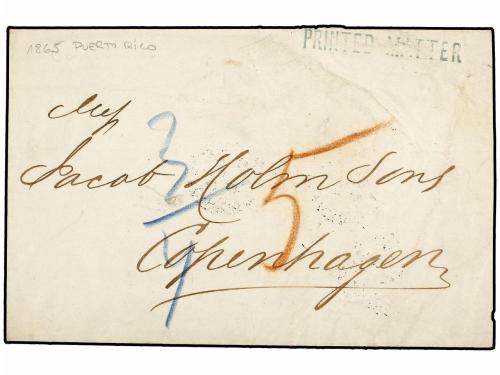 1865 PUERTO RICO
PRINTED MATTER
Mess
Jacob Holm Sons
3/4
5
Copenhagen